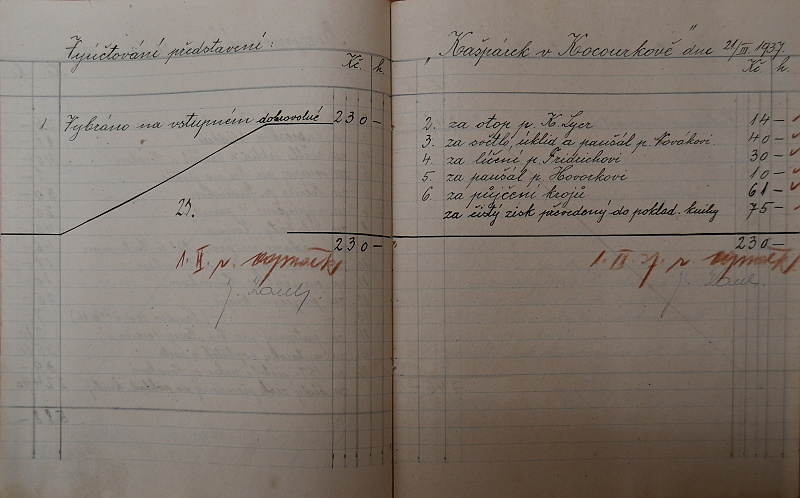 Vyúčtování představení:
Kč. h.
1. Vybráno na vstupném dobrovolné 230 –
25.
230 –
1. II. p.
"Kašpárek v Kocourkově" dne 21/III. 1937.
Kč. h.
2. za otop p. K. Lyer 14 –
3. za světlo, úklid a paušál p. Novákovi. 40 –
4. za líčení p. Friduchovi 30 –
5. za paušál p. Hovorkovi 10 –
6. za půjčení krojů 61 –
za čistý zisk převedený do poklad. knihy 75 –
230 –